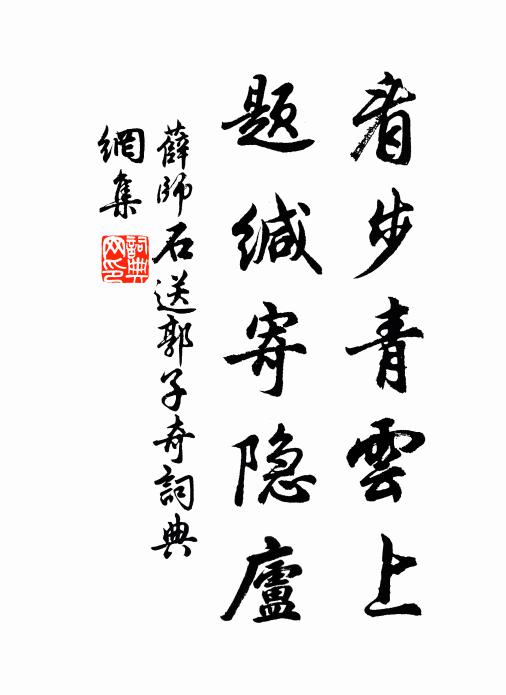 看步青雲上
題缄寄隐廬
薛師石送郭子奇詞典
網集
詞典
网印